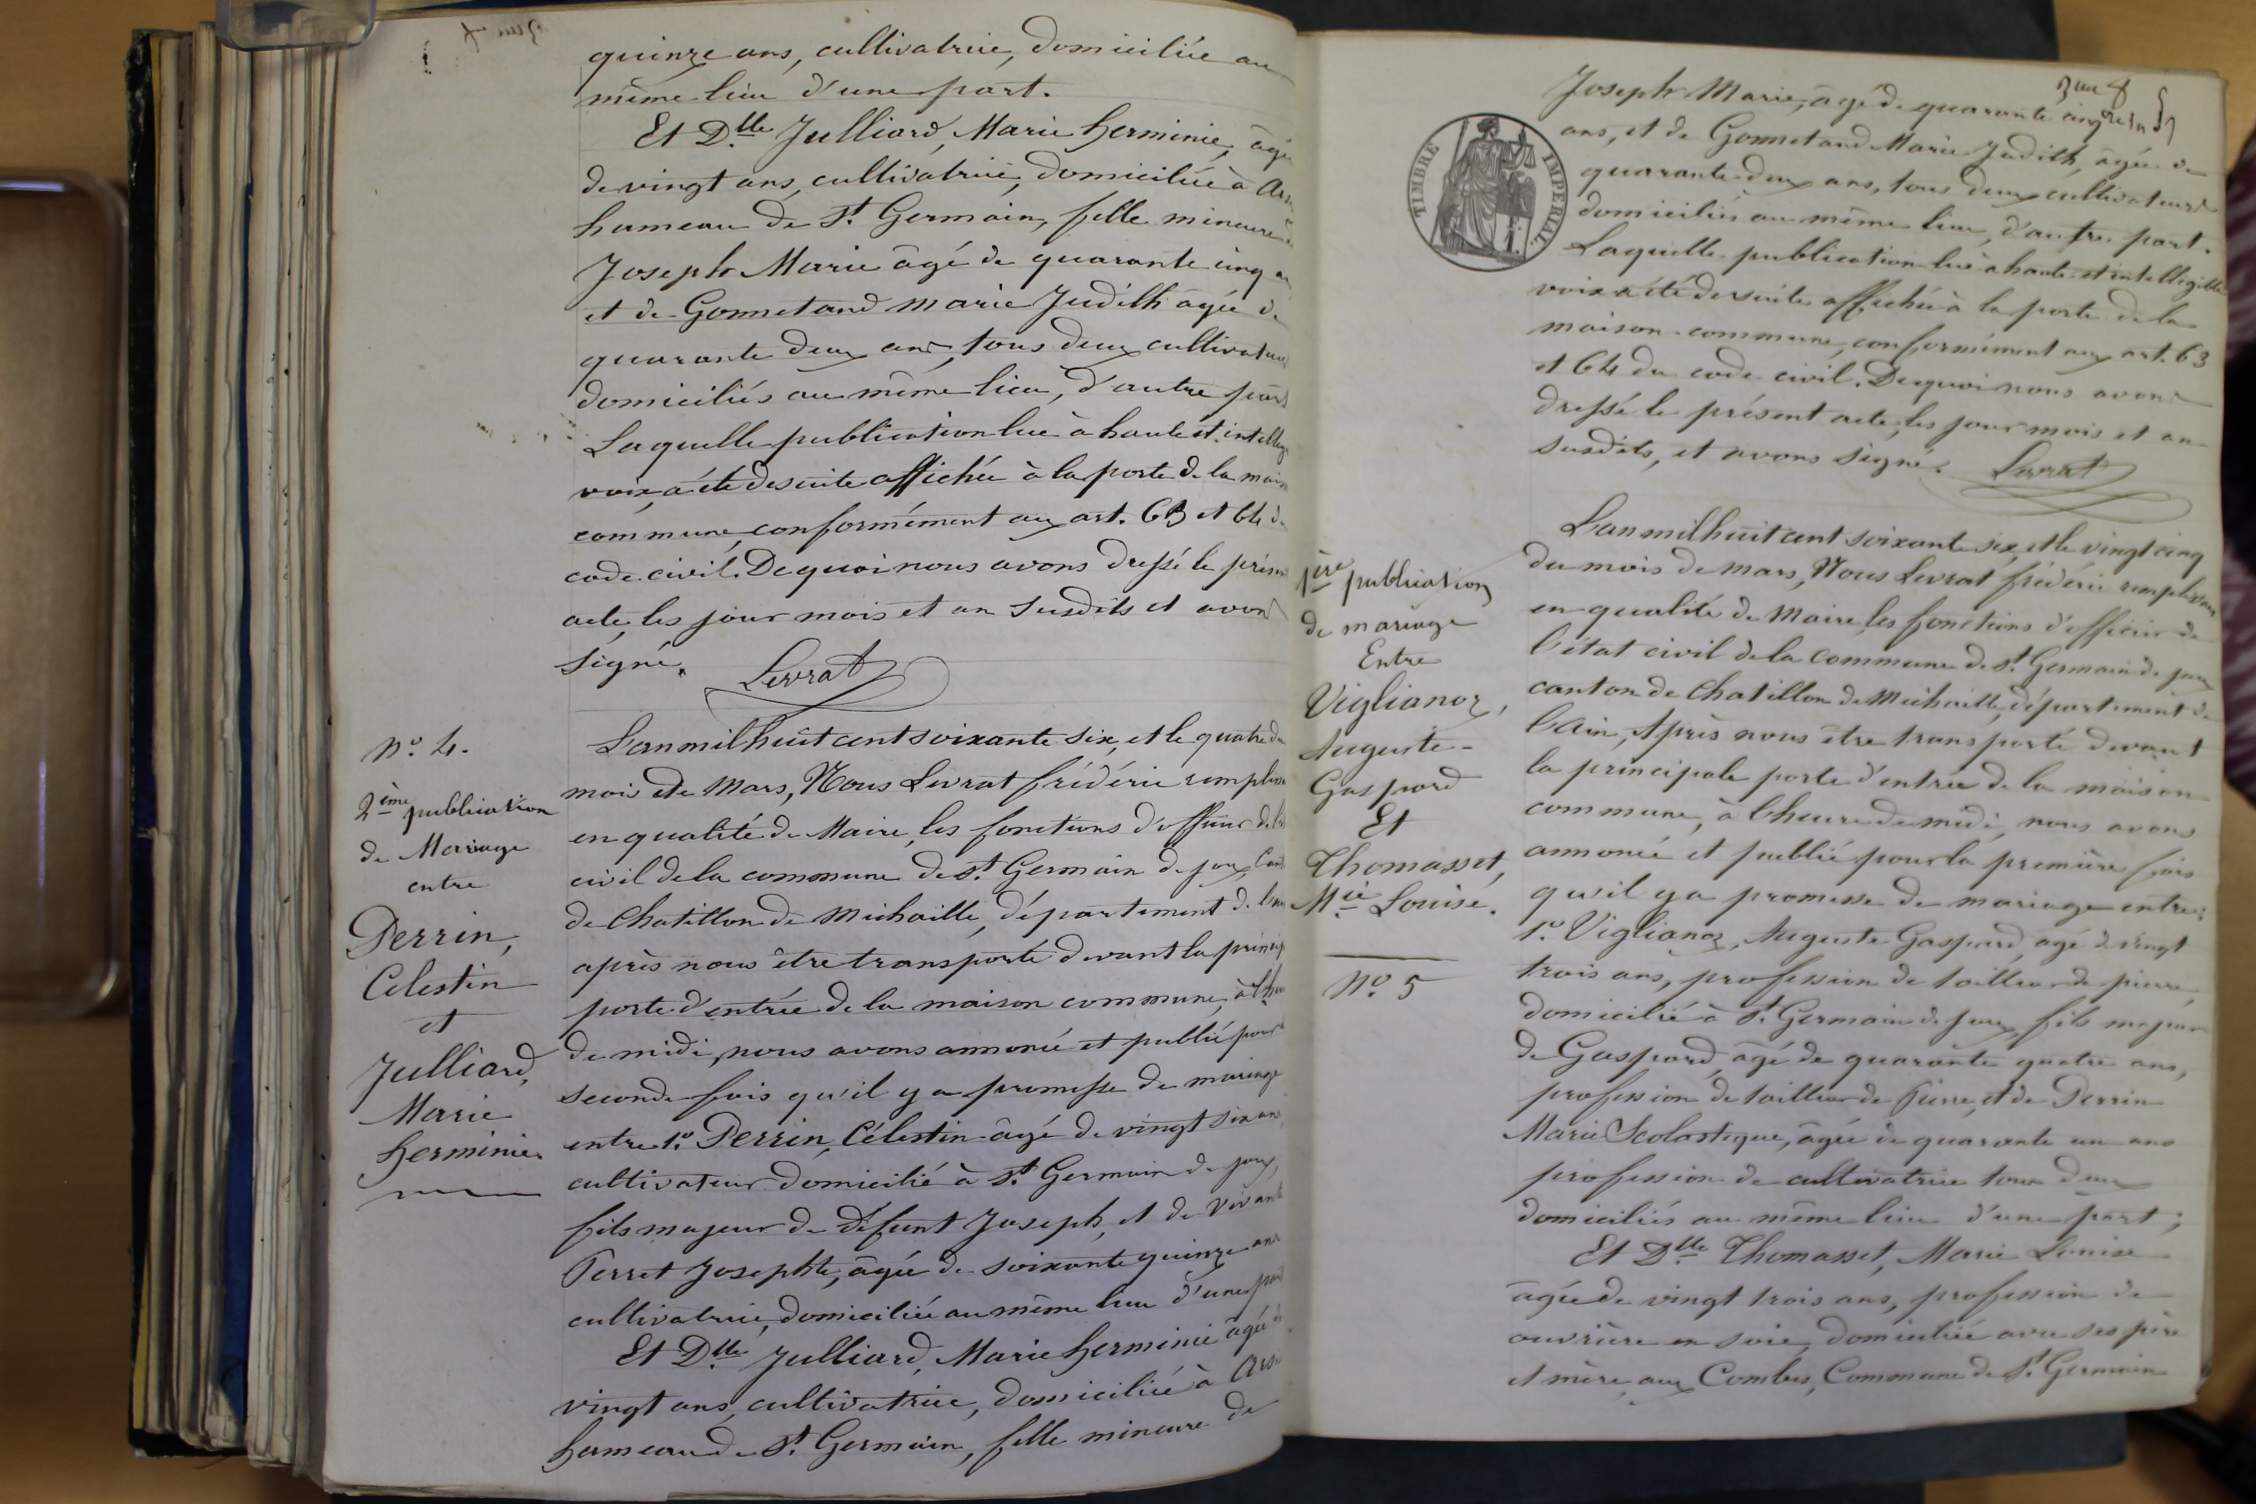 quinze ans, cultivatrice, domiciliée au
même lieu d'une part.
Et D.lle Julliard, Marie Herminie, âgée
de vingt ans, cultivatrice, domiciliée à
hameau de St. Germain, fille mineure de
Joseph Marie âgé de quarante cinq
et de Gonnetand Marie Judith âgée de
quarante deux ans, tous deux cultivateurs
domiciliés au même lieu, d'autre part
Laquelle publication lue à haute et
voix, a été de suite affichée à la porte de la
commune, conformément aux art. 63 et 64 du
code civil. De quoi nous avons dressé le
acte, les jour mois et an susdits et avons
signé. Levrat
N.o 4.
2.ème publication
de Mariage
entre
Perrin,
Celestin
et
Julliard,
Marie
Herminie.
L'an mil huit cent soixante six, et le quatre du
mois de Mars, Nous Levrat frédéric
en qualité de Maire, les fonctions d'officier de
civil de la commune de St. Germain de joux,
de Chatillon de Michaille, département de
après nous être transporté devant la
porte d'entrée de la maison commune, à
de midi, nous avons annoncé et publié pour
seconde fois qu'il y a promesse de mariage
entre 1.o Perrin, Célestin âgé de vingt six ans
cultivateur domicilié à St. Germain de joux,
fils majeur de défunt Joseph, et de vivante
Perret Josephte, âgée de soixante quinze ans
cultivatrice, domiciliée au même lieu d'une part
Et D.lle Julliard, Marie Herminie âgée de
vingt ans, cultivatrice, domiciliée à
hameau de St. Germain, fille mineure de
TIMBRE IMPÉRIAL.
Joseph Marie, âgé de quarante cinq
ans, et de Gonnetand Marie Judith, âgée de
quarante deux ans, tous deux cultivateurs
domiciliés au même lieu, d'autre part.
Laquelle publication lue à haute et intelligible
voix a été de suite affichée à la porte de la
maison commune, conformément aux art. 63
et 64 du code civil. De quoi nous avons
dressé le présent acte, les jour mois et an
susdits, et avons signé. Levrat
1.ère publication
de mariage
Entre
Viglianoz,
Auguste-
Gaspard
Et
Thomasset,
M.ie Louise.
N.o 5
L'an mil huit cent soixante six, et le vingt cinq
du mois de mars, Nous Levrat frédéric remplissant
en qualité de Maire, les fonctions d'officier de
l'état civil de la commune de St. Germain de joux
canton de Chatillon de Michaille, département de
l'ain, Après nous être transporté devant
la principale porte d'entrée de la maison
commune, à l'heure de midi, nous avons
annoncé et publié pour la première fois
qu'il y a promesse de mariage entre:
1.o Viglianoz, Auguste Gaspard, âgé de vingt
trois ans, profession de tailleur de pierre,
domicilié à St. Germain de Joux, fils majeur
de Gaspard, âgé de quarante quatre ans,
profession de tailleur de Pierre, et de Perrin
Marie Scolastique, âgée de quarante un ans
profession de cultivatrice tous deux
domiciliés au même lieu d'une part;
Et D.lle Thomasset, Marie Louise
âgée de vingt trois ans, profession de
ouvrière en soie, domiciliée avec ses père
et mère, aux Combes, Commune de St. Germain